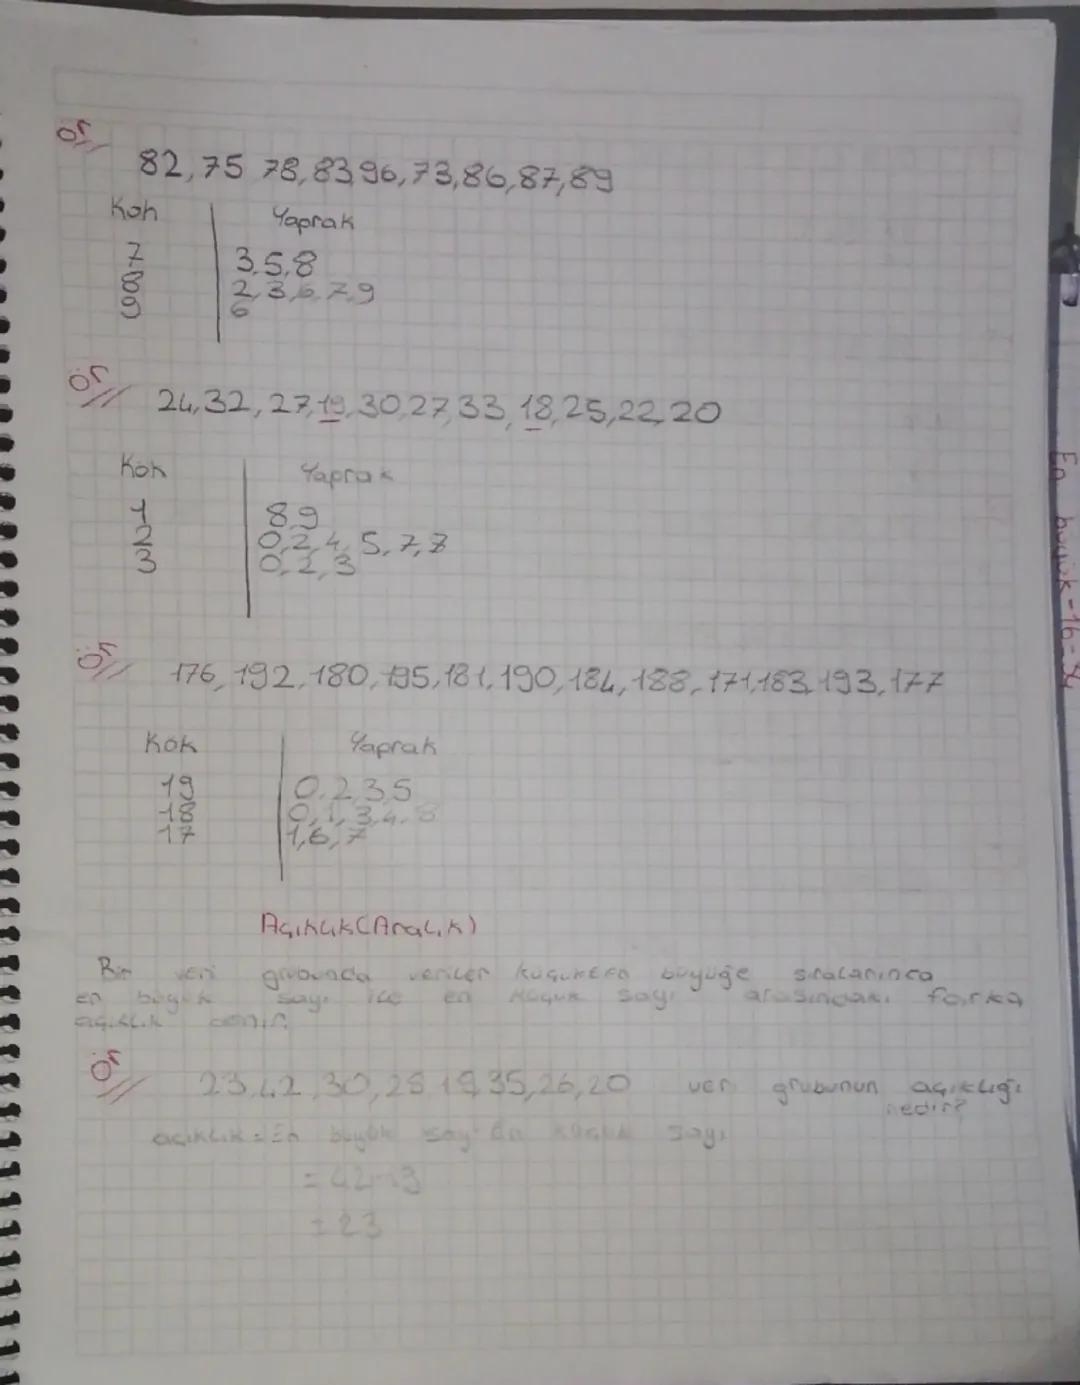 ör//
82,75 78,83,96,73,86,87,89
Kök Yaprak
7 3,5,8
8 2,3,6,7,9
9 6
ör//
24,32,27,19,30,27,33,18,25,22,20
Kök Yaprak
1 8,9
2 0,2,4,5,7,7
3 0,2,3
ör//
176,192,180,195,181,190,184,188,171,183,193,177
Kök Yaprak
19 0,2,3,5
18 0,1,3,4,8
17 1,6,7
Açıklık (Aralık)
Bir veri grubunda veriler küçükten büyüğe sıralanınca
en büyük sayı ile en küçük sayı arasındaki farka
açıklık denir.
ör//
23,42,30,28,19,35,26,20 veri grubunun açıklığı
nedir?
açıklık = En büyük sayı - En küçük sayı
= 42-19
= 23
En büyük